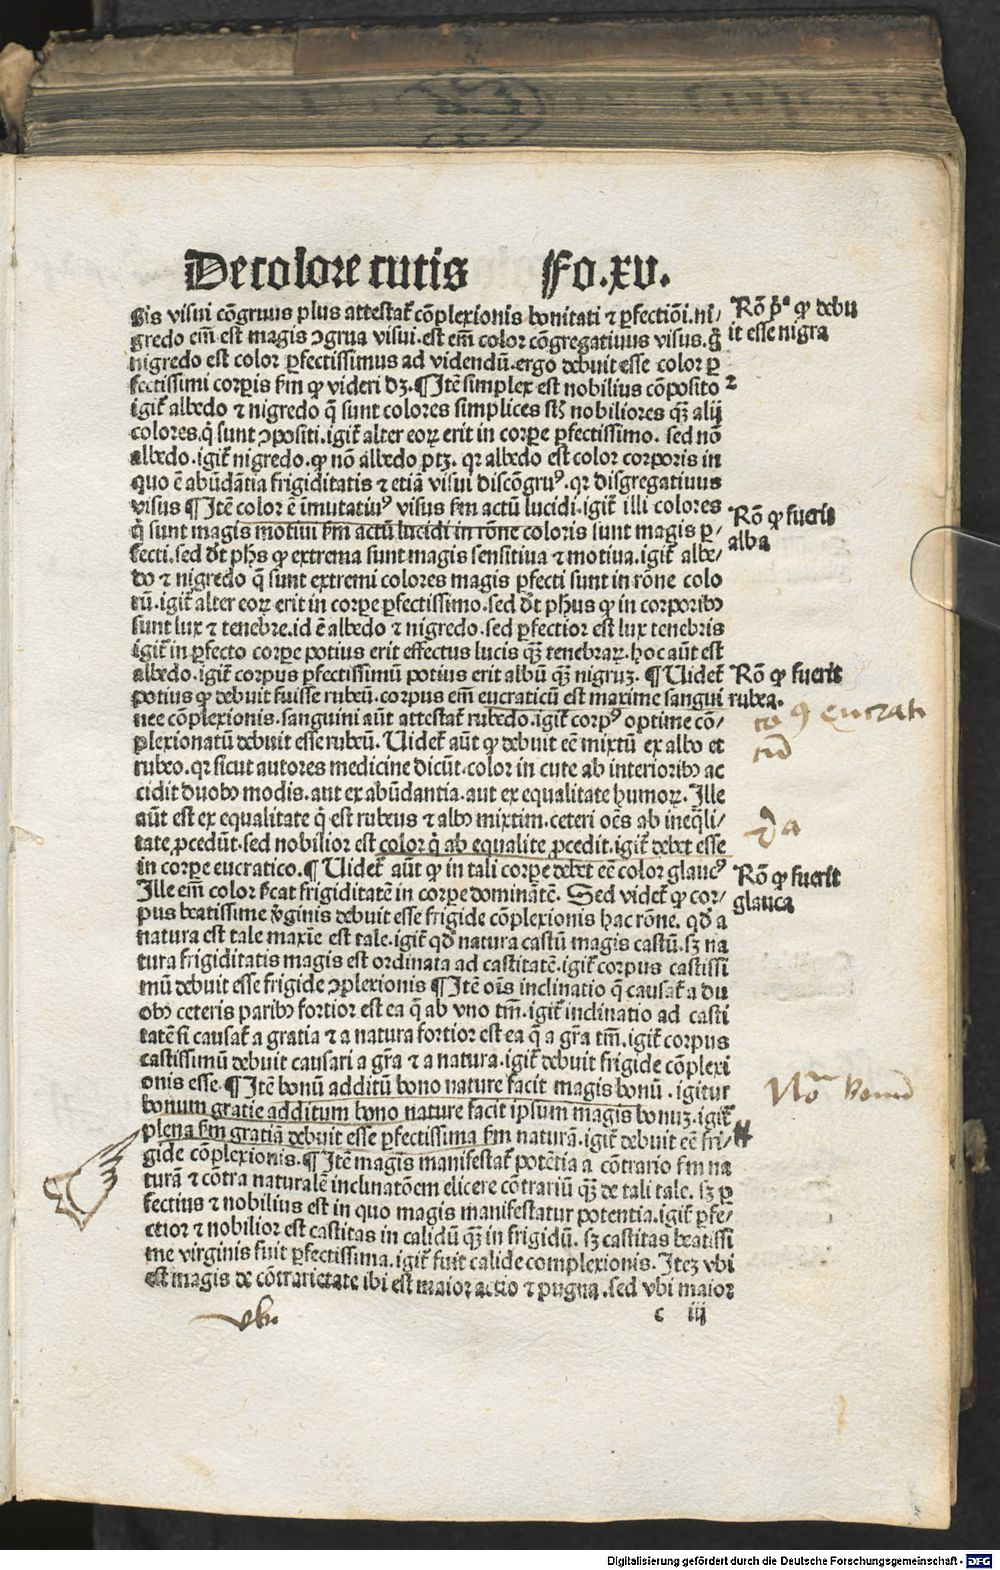 De colore cutis Fo.xv.
gis visui cõgruus plus attestat᷑ cõplexionis bonitati ⁊ ꝑfectiõi. ni/
gredo em̃ est magis ↄgrua visui. est em̃ color cõgregatiuus visus. g̊
nigredo est color ꝑfectissimus ad videndũ. ergo debuit esse color ꝑ
fectissimi corꝑis ẜm ꝙ videri dꝫ. ¶ Itẽ simplex est nobilius cõposito
igit᷑ albedo ⁊ nigredo q̃ sunt colores simplices st᷑ nobiliores qꝫ̃ alij
colores. q̇ sunt ↄpositi. igit᷑ alter eoꝝ erit in corꝑe ꝑfectissimo. sed nõ
albedo. igit᷑ nigredo. ꝙ nõ albedo ptꝫ. qꝛ albedo est color corporis in
quo ẽ abũdãtia frigiditatis ⁊ etiã visui discõgruꝰ. qꝛ disgregatiuus
visus ¶ Itẽ color ẽ ĩmutatiuꝰ visus ẜm actũ lucidi. igit᷑ illi colores
q̇ sunt magis motiui ẜm actũ lucidi in rõne coloris sunt magis ꝑ/
fecti. sed dt̃ ph̃s ꝙ extrema sunt magis sensitiua ⁊ motiua. igit᷑ albe/
do ⁊ nigredo q̃ sunt extremi colores magis ꝑfecti sunt in rõne colo
rũ. igit᷑ alter eoꝝ erit in corꝑe ꝑfectissimo. sed dt̃ ph̃us ꝙ in corporibꝰ
sunt lux ⁊ tenebre. id ẽ albedo ⁊ nigredo. sed ꝑfectior est lux tenebris
igit᷑ in ꝑfecto corꝑe potius erit effectus lucis qꝫ̃ tenebraꝝ. hoc aũt est
albedo. igit᷑ corpus ꝑfectissimũ potius erit albũ qꝫ̃ nigruꝫ. ¶ Uidet᷑
potius ꝙ debuit fuisse rubeũ. corpus em̃ eucraticũ est maxime sangui
nee cõplexionis. sanguini aũt attestat᷑ rubedo. igit᷑ corpꝰ optime cõ/
plexionatũ debuit esse rubeũ. Uidet᷑ aũt ꝙ debuit eẽ mixtũ ex albo et
rubeo. qꝛ sicut autores medicine dicũt. color in cute ab interioribꝰ ac
cidit duobꝰ modis. aut ex abũdantia. aut ex equalitate humoꝝ. Ille
aũt est ex equalitate q̇ est rubeus ⁊ albꝰ mixtim. ceteri oẽs ab ineq̃li/
tate ꝓcedũt. sed nobilior est color q̇ ab equalite ꝓcedit. igit᷑ debet esse
in corꝑe eucratico. ¶ Uidet᷑ aũt ꝙ in tali corꝑe debet eẽ color glaucꝰ
Ille em̃ color ẜcat frigiditatẽ in corꝑe dominãtẽ. Sed videt᷑ ꝙ cor/
pus beatissime ṽginis debuit esse frigide cõplexionis hac rõne. qd̃ a
natura est tale maxĩe est tale. igit᷑ qd̃ natura castũ magis castũ. sꝫ na
tura frigiditatis magis est ordinata ad castitatẽ. igit᷑ corpus castissi
mũ debuit esse frigide ↄplexionis ¶ Itẽ oĩs inclinatio q̃ causat᷑ a du
obꝰ ceteris paribꝰ fortior est ea q̃ ab vno tm̃. igit᷑ inclinatio ad casti
tatẽ si causat᷑ a gratia ⁊ a natura fortior est ea q̃ a gr̃a tm̃. igit᷑ corpus
castissimũ debuit causari a gr̃a ⁊ a natura. igit᷑ debuit frigide cõplexi
onis esse. ¶ Itẽ bonũ additũ bono nature facit magis bonũ. igitur
bonum gratie additum bono nature facit ipsum magis bonuꝫ. igit᷑
plena ẜm gratiã debuit esse ꝑfectissima ẜm naturã. igit᷑ debuit eẽ fri/
gide cõplexionis. ¶ Itẽ magis manifestat᷑ potẽtia a cõtrario ẜm na
turã ⁊ cõtra naturalẽ inclinatõem elicere cõtrariũ qꝫ̃ de tali tale. sꝫ ꝑ
fectius ⁊ nobilius est in quo magis manifestatur potentia. igit᷑ ꝑfe/
ctior ⁊ nobilior est castitas in calidũ qꝫ̃ in frigidũ. sꝫ castitas beatissi
me virginis fuit ꝑfectissima. igit᷑ fuit calide complexionis. Iteꝫ vbi
est magis de cõtrarietate ibi est maior actio ⁊ pugna. sed vbi maior
c iij
Rõ pª ꝙ debu
it esse nigra
2
Rõ ꝙ fuerit
alba
Rõ ꝙ fuerit
rubea.
eucrati
cũ
Rõ ꝙ fuerit
glauca